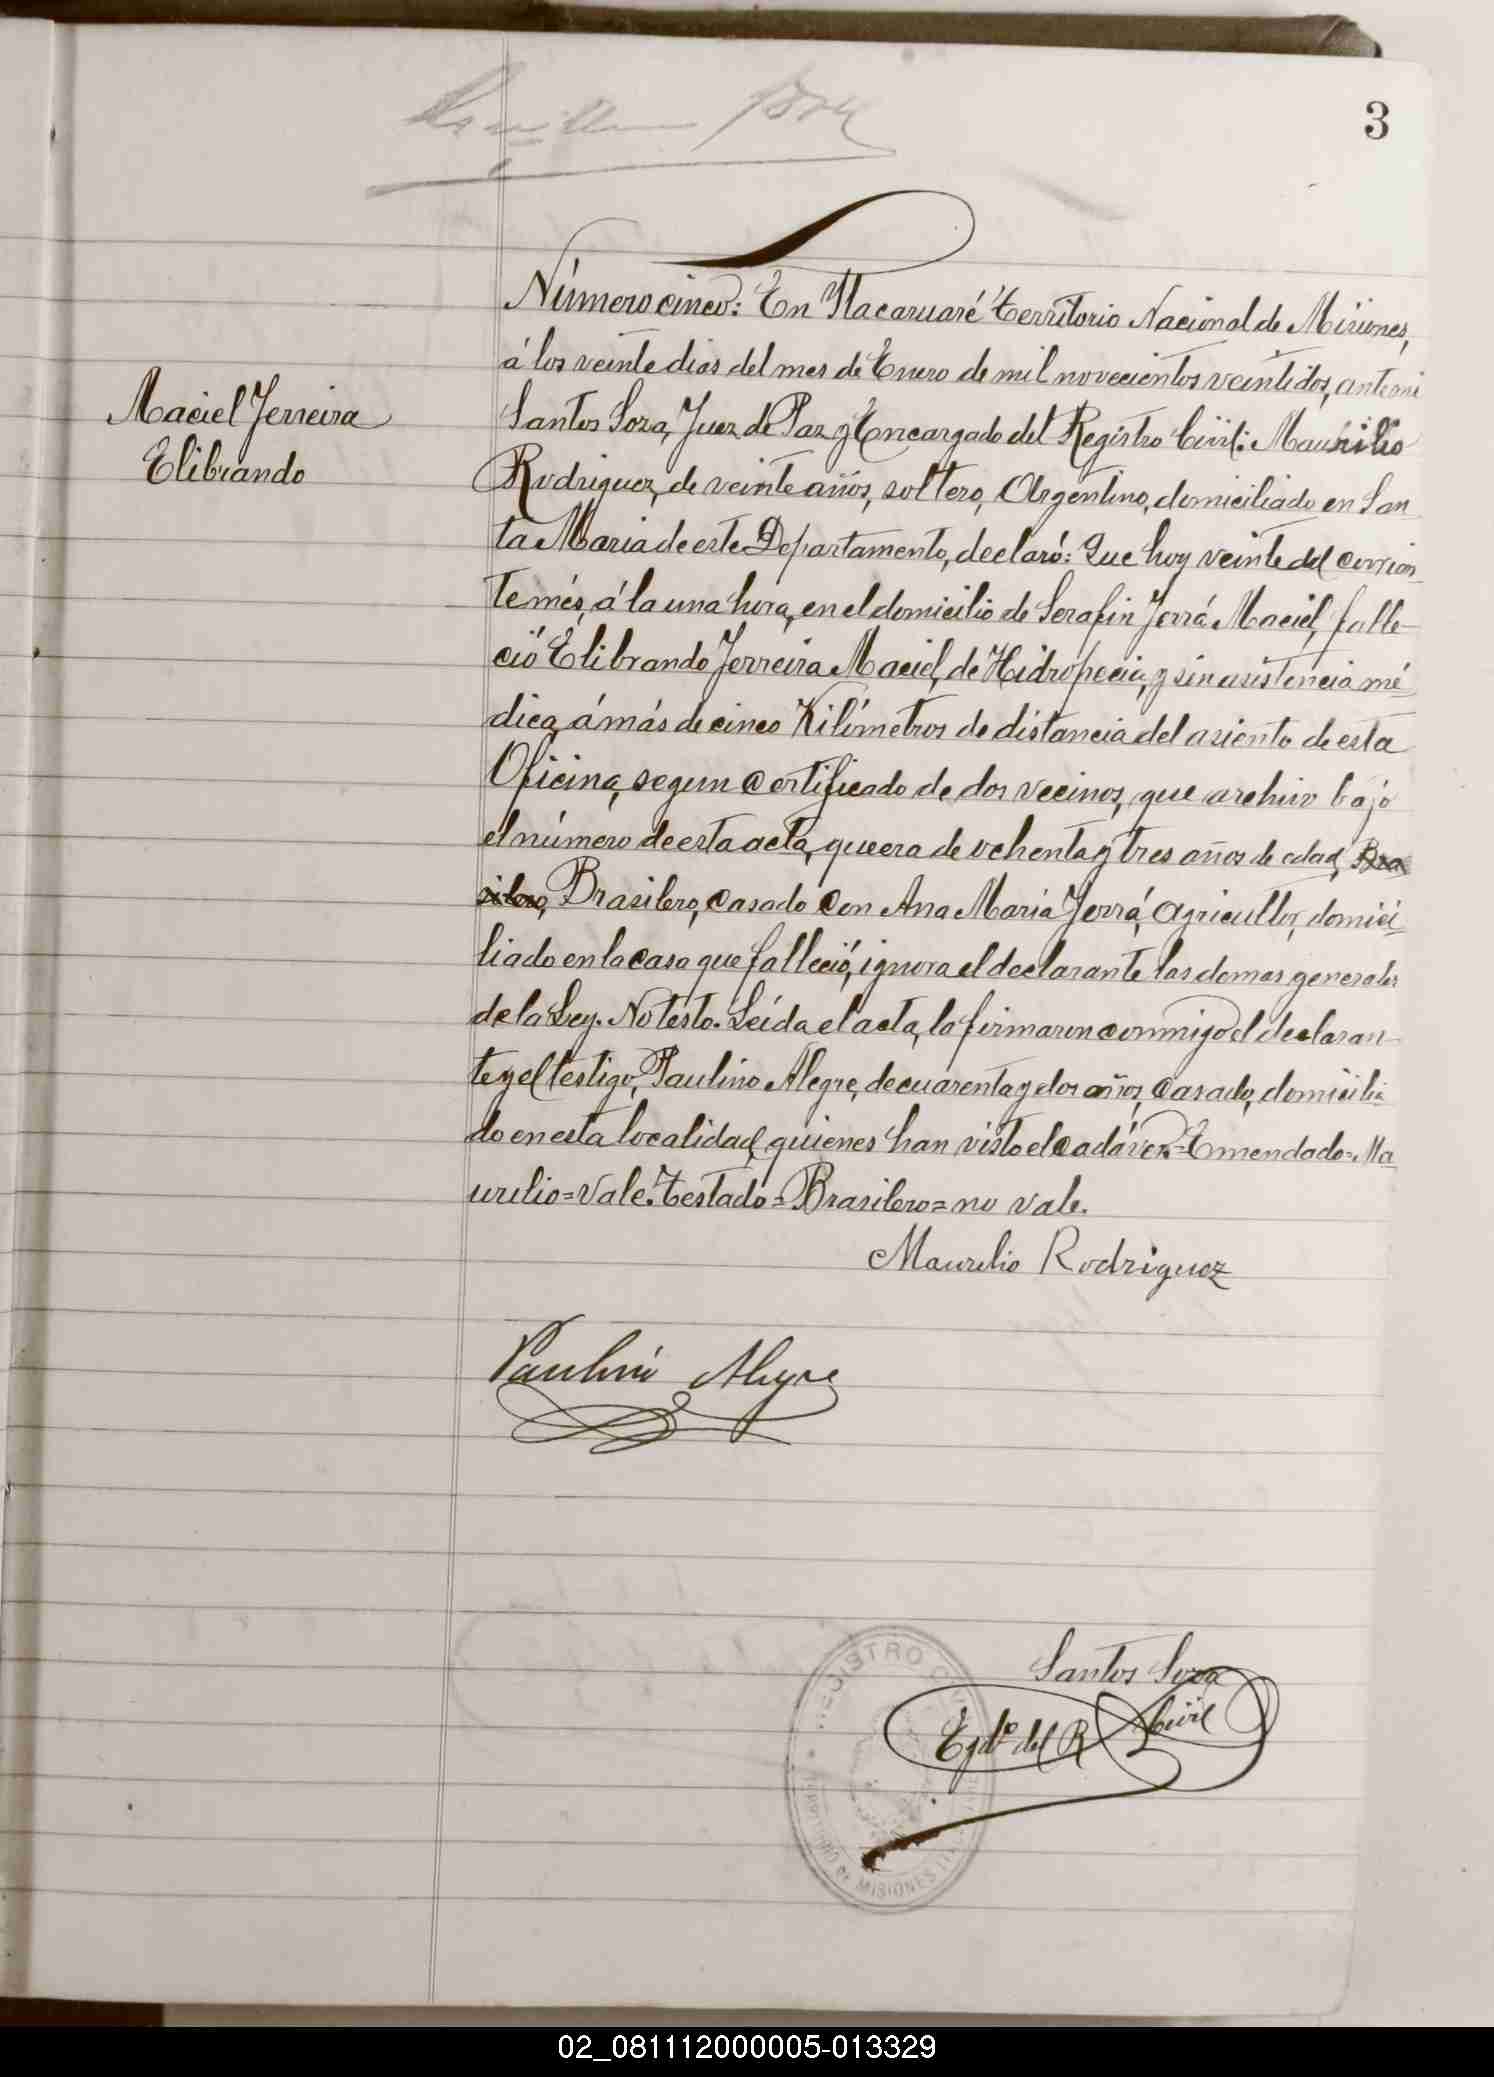 3
Número cinco: En Itacaruaré Territorio Nacional de Misiones,
á los veinte dias del mes de Enero de mil novecientos veintidos, ante mi
Maciel Ferreira
Elibrando
Santos Soza, Juez de Paz y Encargado del Registro Civil: Maurilio
Rodriguez, de veinte años, soltero, Argentino, domiciliado en San
ta Maria de este Departamento, declaró: Que hoy veinte del corrien
te més, á la una hora, en el domicilio de Serafin Ferrá Maciel, falle-
ció Elibrando Ferreira Maciel, de Hidropecia, y sin asistencia mé
dica, á más de cinco Kilómetros de distancia del asiento de esta
Oficina, segun certificado de dos vecinos, que archivo bajo
el número de esta acta, que era de ochenta y tres años de edad, Bra
silero, Brasilero, casado con Ana Maria Ferrá, agricultor, domici
liado en la casa que falleció, ignora el declarante las demas generales
de la Ley. No testo. Leída el acta, la firmaron conmigo el declaran
te y el testigo, Paulino Alegre, de cuarenta y dos años, casado, domicilia
do en esta localidad, quienes han visto el cadáver.=Emendado=Ma
urilio=Vale. Testado=Brasilero=no vale.
Maurilio Rodriguez
Paulino Alegre
Santos Soza
Egdo. del R Civil
REGISTRO CIVIL
MISIONES
02_081112000005-013329